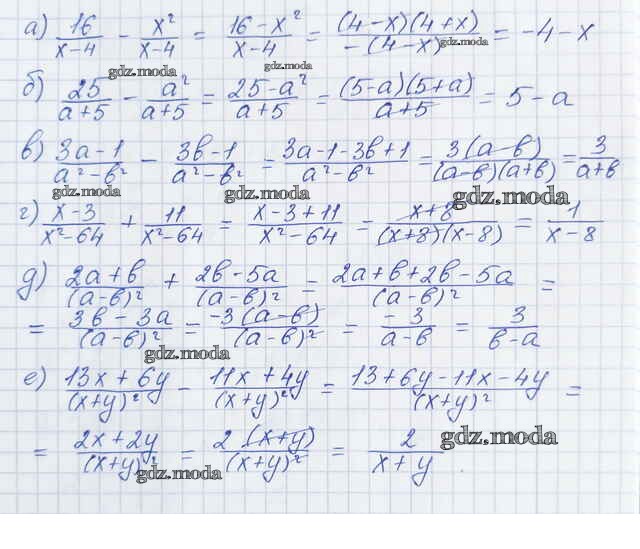 а) 16/(x-4) - x²/(x-4) = (16-x²)/(x-4) = (4-x)(4+x)/-(4-x) = -4-x
gdz.moda gdz.moda gdz.moda
б) 25/(a+5) - a²/(a+5) = (25-a²)/(a+5) = (5-a)(5+a)/(a+5) = 5-a
в) (3a-1)/(a²-b²) - (3b-1)/(a²-b²) = (3a-1-3b+1)/(a²-b²) = 3(a-b)/(a-b)(a+b) = 3/(a+b)
gdz.moda gdz.moda gdz.moda
г) (x-3)/(x²-64) + 11/(x²-64) = (x-3+11)/(x²-64) = (x+8)/(x+8)(x-8) = 1/(x-8)
д) (2a+b)/(a-b)² + (2b-5a)/(a-b)² = (2a+b+2b-5a)/(a-b)² =
= (3b-3a)/(a-b)² = -3(a-b)/(a-b)² = -3/(a-b) = 3/(b-a)
gdz.moda
е) (13x+6y)/(x+y)² - (11x+4y)/(x+y)² = (13+6y-11x-4y)/(x+y)² =
= (2x+2y)/(x+y)² = 2(x+y)/(x+y)² = 2/(x+y)
gdz.moda gdz.moda